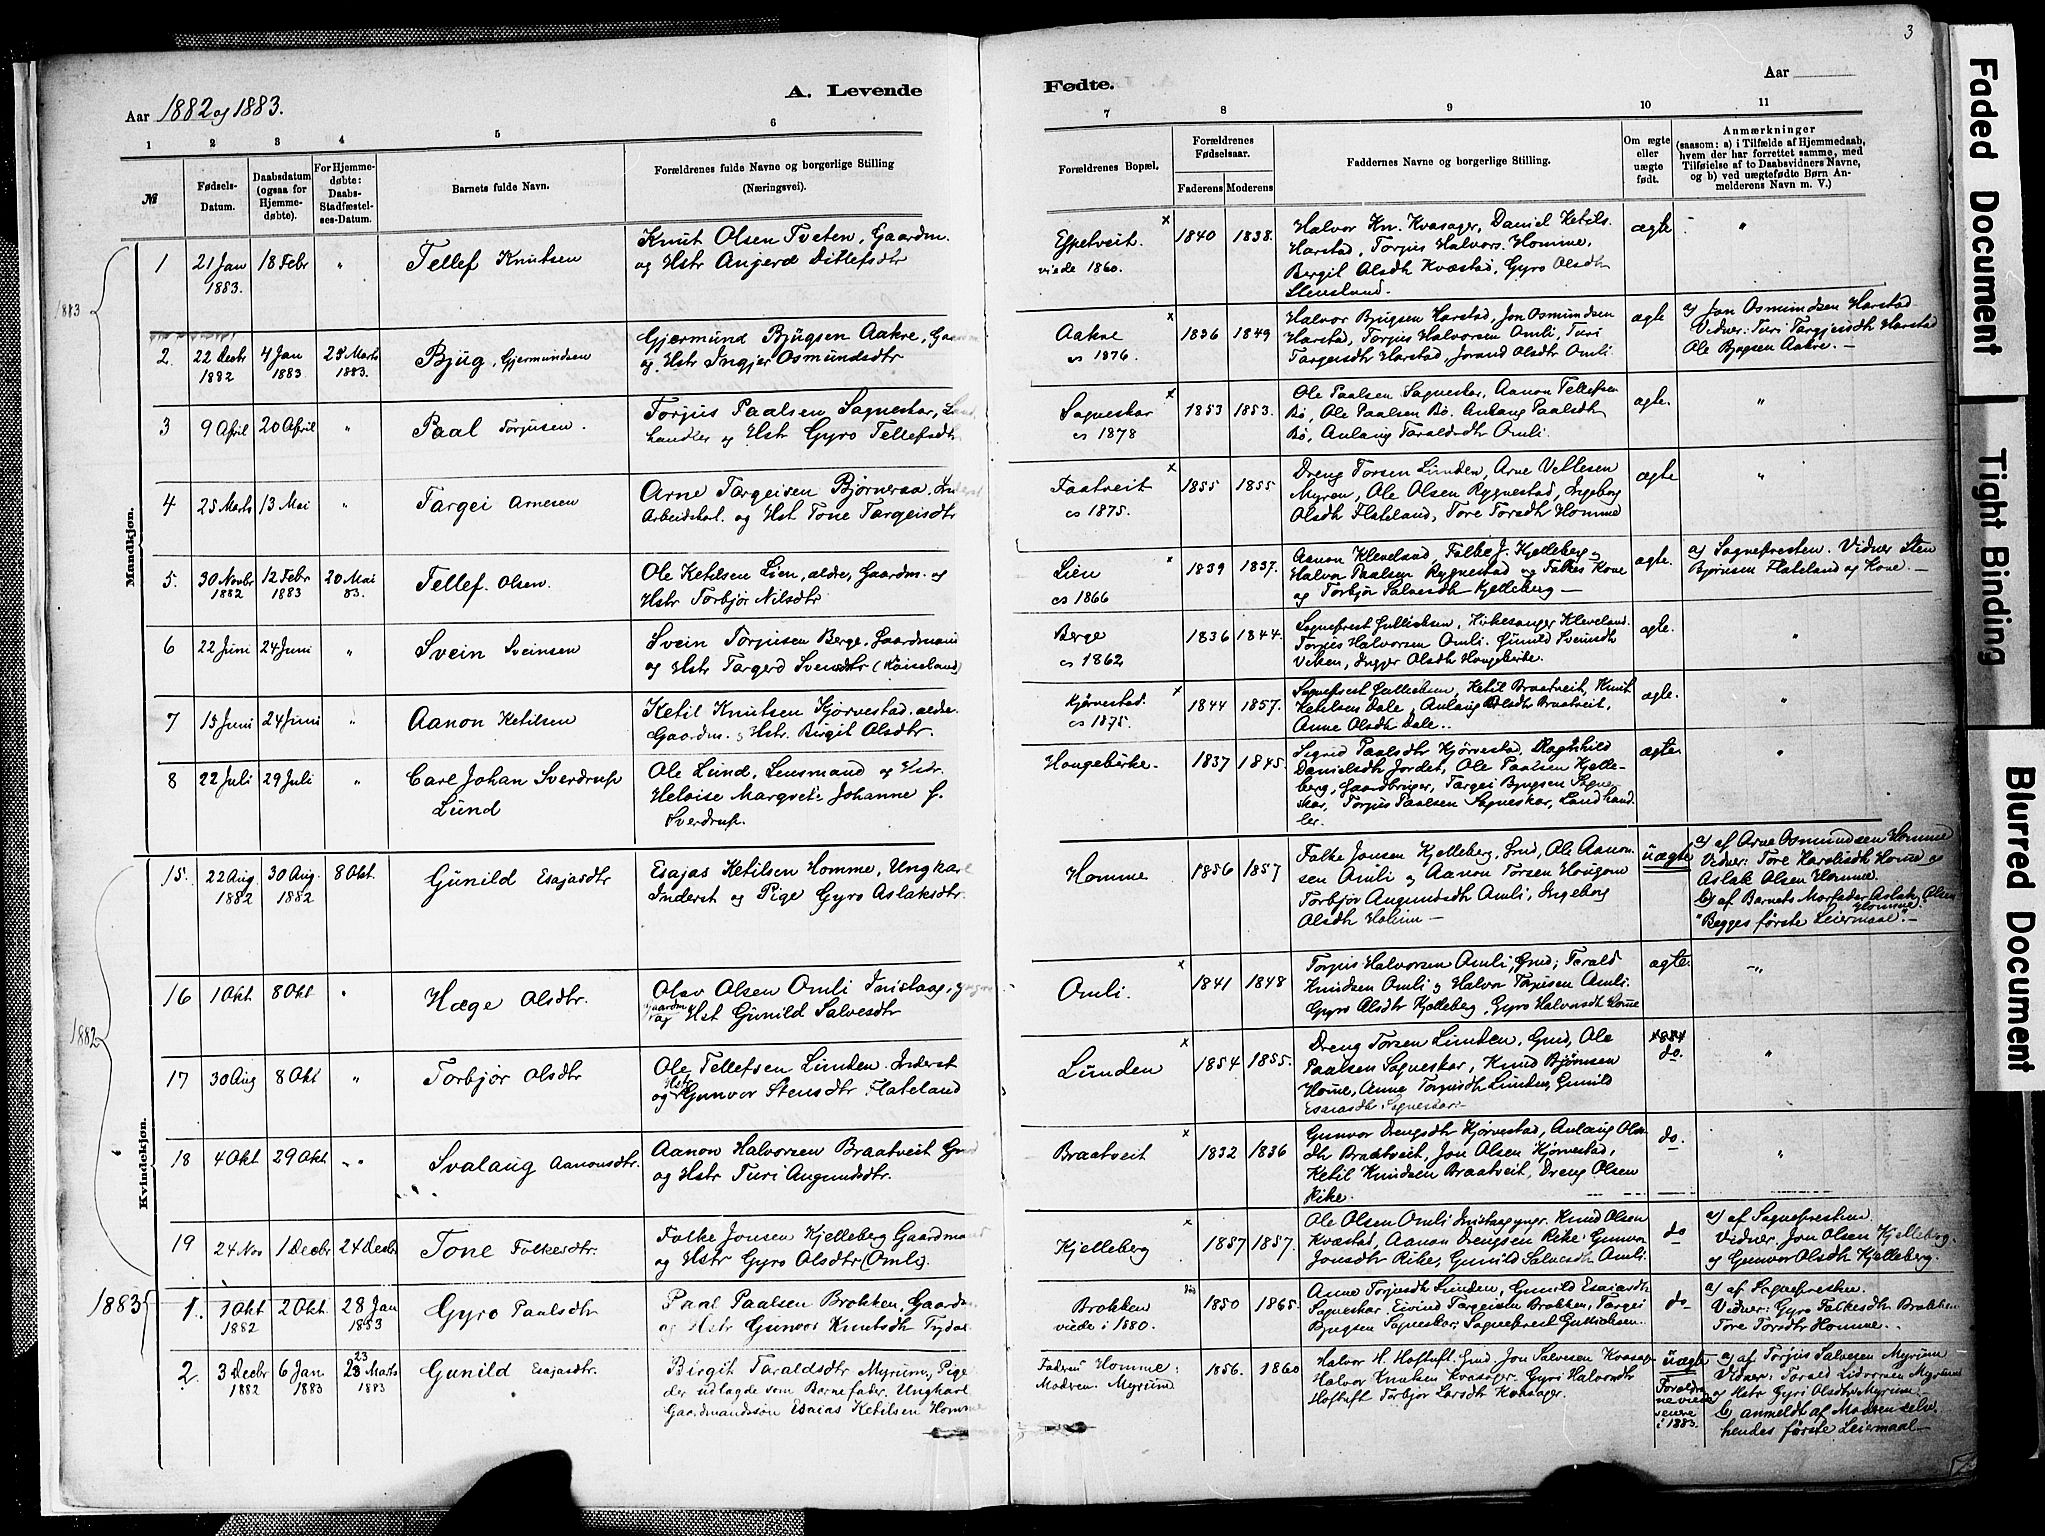 3
Aar 1882 og 1883.
A. Levende
Fødte.
Aar
1 2 3 4 5 6 7 8 9 10 11
№
Fødsels-
Datum.
Daabsdatum
(ogsaa for
Hjemme-
døbte).
For Hjemme-
døbte:
Daabs-
Stadfæstel-
ses-Datum.
Barnets fulde Navn.
Forældrenes fulde Navne og borgerlige Stilling
(Næringsvei).
Forældrenes Bopæl.
Forældrenes
Fødselsaar.
Faderens Moderens
Faddernes Navne og borgerlige Stilling.
Om ægte
eller
uægte
født.
Anmærkninger
(saasom: a) i Tilfælde af Hjemmedaab,
hvem der har forrettet samme, med
Tilføielse af to Daabsvidners Navne,
og b) ved uægtefødte Børn An-
melderens Navn m. V.)
Mandkjøn.
1883
1 21 Jan 1883. 18 Febr " Tellef Knutsen
Knut Olsen Tveten, Gaardm.
og Hstr Anjerd Ditlefsdtr
Espetveit. x
viede 1860.
1840 1838.
Halvor Kn. Kvasager, Daniel Ketils.
Harstad, Torjus Halvors. Homme,
Bergit Olsdtr Kvæstad, Gyro Olsdtr
Stensland.
ægte "
2. 22 Decbr 1882 4 Jan 1883 Marts 1883. Bjug, Gjermundsen
Gjermund Bjugsen Aakre,
og Hstr Ingjer Osmundsdtr
Aakre x
1876.
1836 1849
Halvor Bjugsen Harstad, Jon Osmundsen
Harstad, Torjus Halvorsen Omli, Turi
Targeisdtr Harstad, Jorand Olsdtr Omli.
ægte
a) Jon Osmundsen Harstad
Vidner: Turi Targjeisdtr Harstad
Ole Bjugsen Aakre. —
3 9 April 20 April " Paal Torjusen.
Torjus Paalsen Sagneskar, Land
handler og Hstr Gyro Tellefsdtr
Sagneskar x
1878
1853 1853.
Ole Paalsen Sagneskar, Aanon Tellefsen
Bø, Ole Paalsen Bø. Anlaug Paalsdtr
Bø, Anlaug Taraldsdtr Omli.
ægte. "
4 25 Marts 13 Mai " Targei Arnesen
Arne Targeisen Bjørneraa, Inderst
Arbeidskarl. og Hst Tone Targeisdtr
Faatveit x
1875.
1855 1855
Dreng Torsen Lunden, Arne Vellesen
Myren, Ole Olsen Rygnestad, Ingeborg
Olsdtr Flateland, Tore Torsdtr Homme
ægte "
5. 30 Novbr 1882 12 Febr 1883 20 Mai 83. Tellef. Olsen.
Ole Ketilsen Lien, ældre, Gaardm. og
Hstr Torbjør Nilsdtr
Lien x
1866
1839 1837.
Aanon Kleveland, Falke J. Kjelleberg og
Halvor Paalsen Rygnestad og Falkes Kone
og Torbjør Salvesdtr Kjelleberg —
ægte.
a) Sognepresten. Vidner Sten
Bjørnsen Flateland og Kone. —
6 22 Juni 24 Juni " Svein Sveinsen
Svein Torjusen Berge, Gaardmand
og Hstr Targerd Svensdtr
Berge
1862
1836 1844.
Sogneprest Gullicksen, Kirkesanger Kleveland.
Torjus Halvorsen Omli. Gunild Svensdtr
Viksen, Ingger Olsdtr Haugebirke.
ægte. "
7 15 Juni 24 Juni " Aanon Ketilsen
Ketil Knutsen Kjørvestad, ældre.
Gaardm. og Hstr. Birgit Olsdtr.
Kjørvestad. x
1875.
1844 1857.
Sogneprest Gullicksen, Ketil Braatveit, Knut
Ketilsen Dale, Anlaug Olsdtr Braatveit,
Anne Olsdtr Dale..
ægte. "
8 22 Juli 29 Juli " Carl Johan Sverdrup
Lund
Ole Lund, Lensmand og Hstr.
Heloise Margrete Johanne f.
Sverdrup.
Haugebirke.
1837 1845.
Sigrid Paalsdtr Kjørvestad, Ragnhild
Danielsdtr Jordet, Ole Paalsen Kjelle-
berg, Gaardbruger, Targei Bjugsen Sagne-
skar, Torjus Paalsen Sagneskar, Landhand
ler.
ægte. "
Kvindekjøn.
1882
15. 22 Aug. 1882 30 Aug. 1882 8 Okt. Gunild Esajasdtr
Esajas Ketilsen Homme, Ungkarl
Inderst og Pige Gyro Aslaksdtr.
Homme
1856 1857
Falke Jonsen Kjelleberg, Grd, Ole Aanon-
sen Omli og Aanon Torsen Haugom
Torbjør Augundsdtr Omli, Ingeborg
Olsdtr Holum —
uægte
a) af Arne Osmundsen Homme
Vidner: Tore Haralsdtr Home og
Aslak Olsen Homme.
b) af Barnets Morfader Aslak Olsen
Homme.
"Begges første Leiermaal". —
16 1 Okt 8 Okt " Hæge Olsdtr.
Olav Olsen Omli Inistaag, yngre
Gaardm
og Hst Gunild Salvesdtr
Omli. x
1841 1848
Torjus Halvorsen Omli, Grd, Tarald
Knudsen Omli og Halvor Torjusen Omli.
Gyro Olsdtr Kjelleberg, Gyro Halvorsdtr Home
ægte. — "
17 30 Aug 8 Okt " Torbjør Olsdtr
Ole Tellefsen Lunden, Inderst
og Hstr Gunvor Stensdtr Flateland
Lunden x
1854 1855.
Dreng Torsen Lunden, Grd, Ole
Paalsen Sagneskar, Knud Bjørnsen
Home, Anne Torjusdtr Lunden, Gunild
Esaiasdtr Sagneskar. —
do. "
18 4 Okt 29 Okt " Svalaug Aanonsdtr.
Aanon Halvorsen Braatveit Grd
og Hstr Turi Augundsdtr.
Braatveit x
1832 1836
Gunvor Drengsdtr Kjørvestad, Anlaug Ols-
dtr Braatveit, Jon Olsen Kjørvestad,
Ketil Knudsen Braatveit, Dreng Olsen
Rike.
do. "
19 24 Nov 1 Decbr 24 Decbr Tone Falkesdtr.
Falke Jonsen Kjelleberg Gaardmand
og Hstr Gyro Olsdtr (Omli).
Kjelleberg x
1857 1857.
Ole Olsen Omli Inistaag yngr. Knud Olsen
Kvæstad, Aanon Drengsen Rike, Gunvor
Jonsdtr Rike, Gunild Salvesdtr Omli.
do
a) af Sognepresten.
Vidner. Jon Olsen Kjelleberg.
og Gunvor Olsdtr Kjelleberg.
1883
1. 1 Okt 1882 2 Okt. 28 Jan 1883 Gyro Paalsdtr
Paal Paalsen Brokken, Gaardm
og Hstr Gunvor Knutsdtr
Brokken
viede i 1880.
1850 1865.
Anne Torjusdtr Lunden, Gunild Esaiasdtr
Sagneskar, Eivind Targeisen Brokken, Targei
Bjugsen Sagneskar, Sogneprest Gullicksen.
do
a) af Sognepresten.
Vidner: Gyro Falkesdtr Brokken
Tore Torsdtr Homme..
2. 3 Decbr 1882 6 Jan 1883 23 Marts 1883 Gunild Esajasdtr.
Birgit Taraldsdtr Myrum, Pige
der udlagde som Barnefader, Ungkarl
Gaardmandssøn Esaias Ketilsen Homme
Fadren Homme:
Modren. Myrum
1856. 1860
Halvor H. Hoftuft. Grd. Jon Salvesen Kvasager
Halvor Knutsen Kvasager. Gyri Halvorsdtr
Hoftuft Torbjør Larsdtr Kvasager.
uægte
Forældre
ne viede
senere
i 1883.
a) af Torjus Salvesen Myrum
Vidner: Tarald Lidvorsen Myrum
og Hstr Gyri Olsdtr Myrum.
b) anmeldt af Modren selv.
hendes første Leiermaal —
Faded Document
Tight Binding
Blurred Document